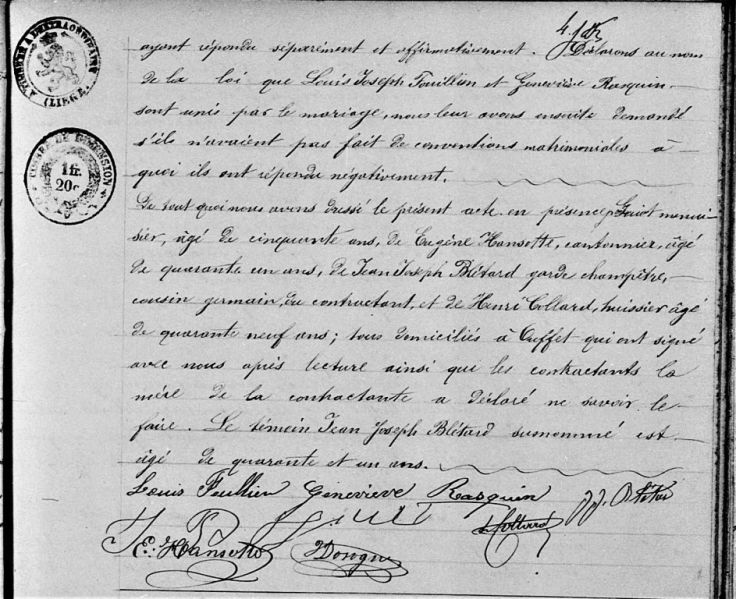 ayant répondu séparément et affirmativement. Déclarons au nom
de la loi que Louis Joseph Fouillien et Geneviève Rasquin,
sont unis par le mariage, nous leur avons ensuite demandé
s'ils n'avaient pas fait de conventions matrimoniales à
quoi ils ont répondu négativement.
De tout quoi nous avons dressé le présent acte en présence Guiot menui-
sier, âgé de cinquante ans, de Eugène Hansotte, cantonnier, âgé
de quarante un ans, de Jean Joseph Blétard garde champêtre,
cousin germain, du contractant, et de Henri Collard, huissier âgé
de quarante neuf ans; tous domiciliés à Ouffet qui ont signé
avec nous après lecture ainsi que les contractants la
mère de la contractante a déclaré ne savoir le
faire. Le témoin Jean Joseph Blétard surnommé est
âgé de quarante et un ans.
Louis Feullien Geneviève Rasquin
Collard
E. Hansotte
(LIEGE)
DIMENSION
1 fr.
20 c.